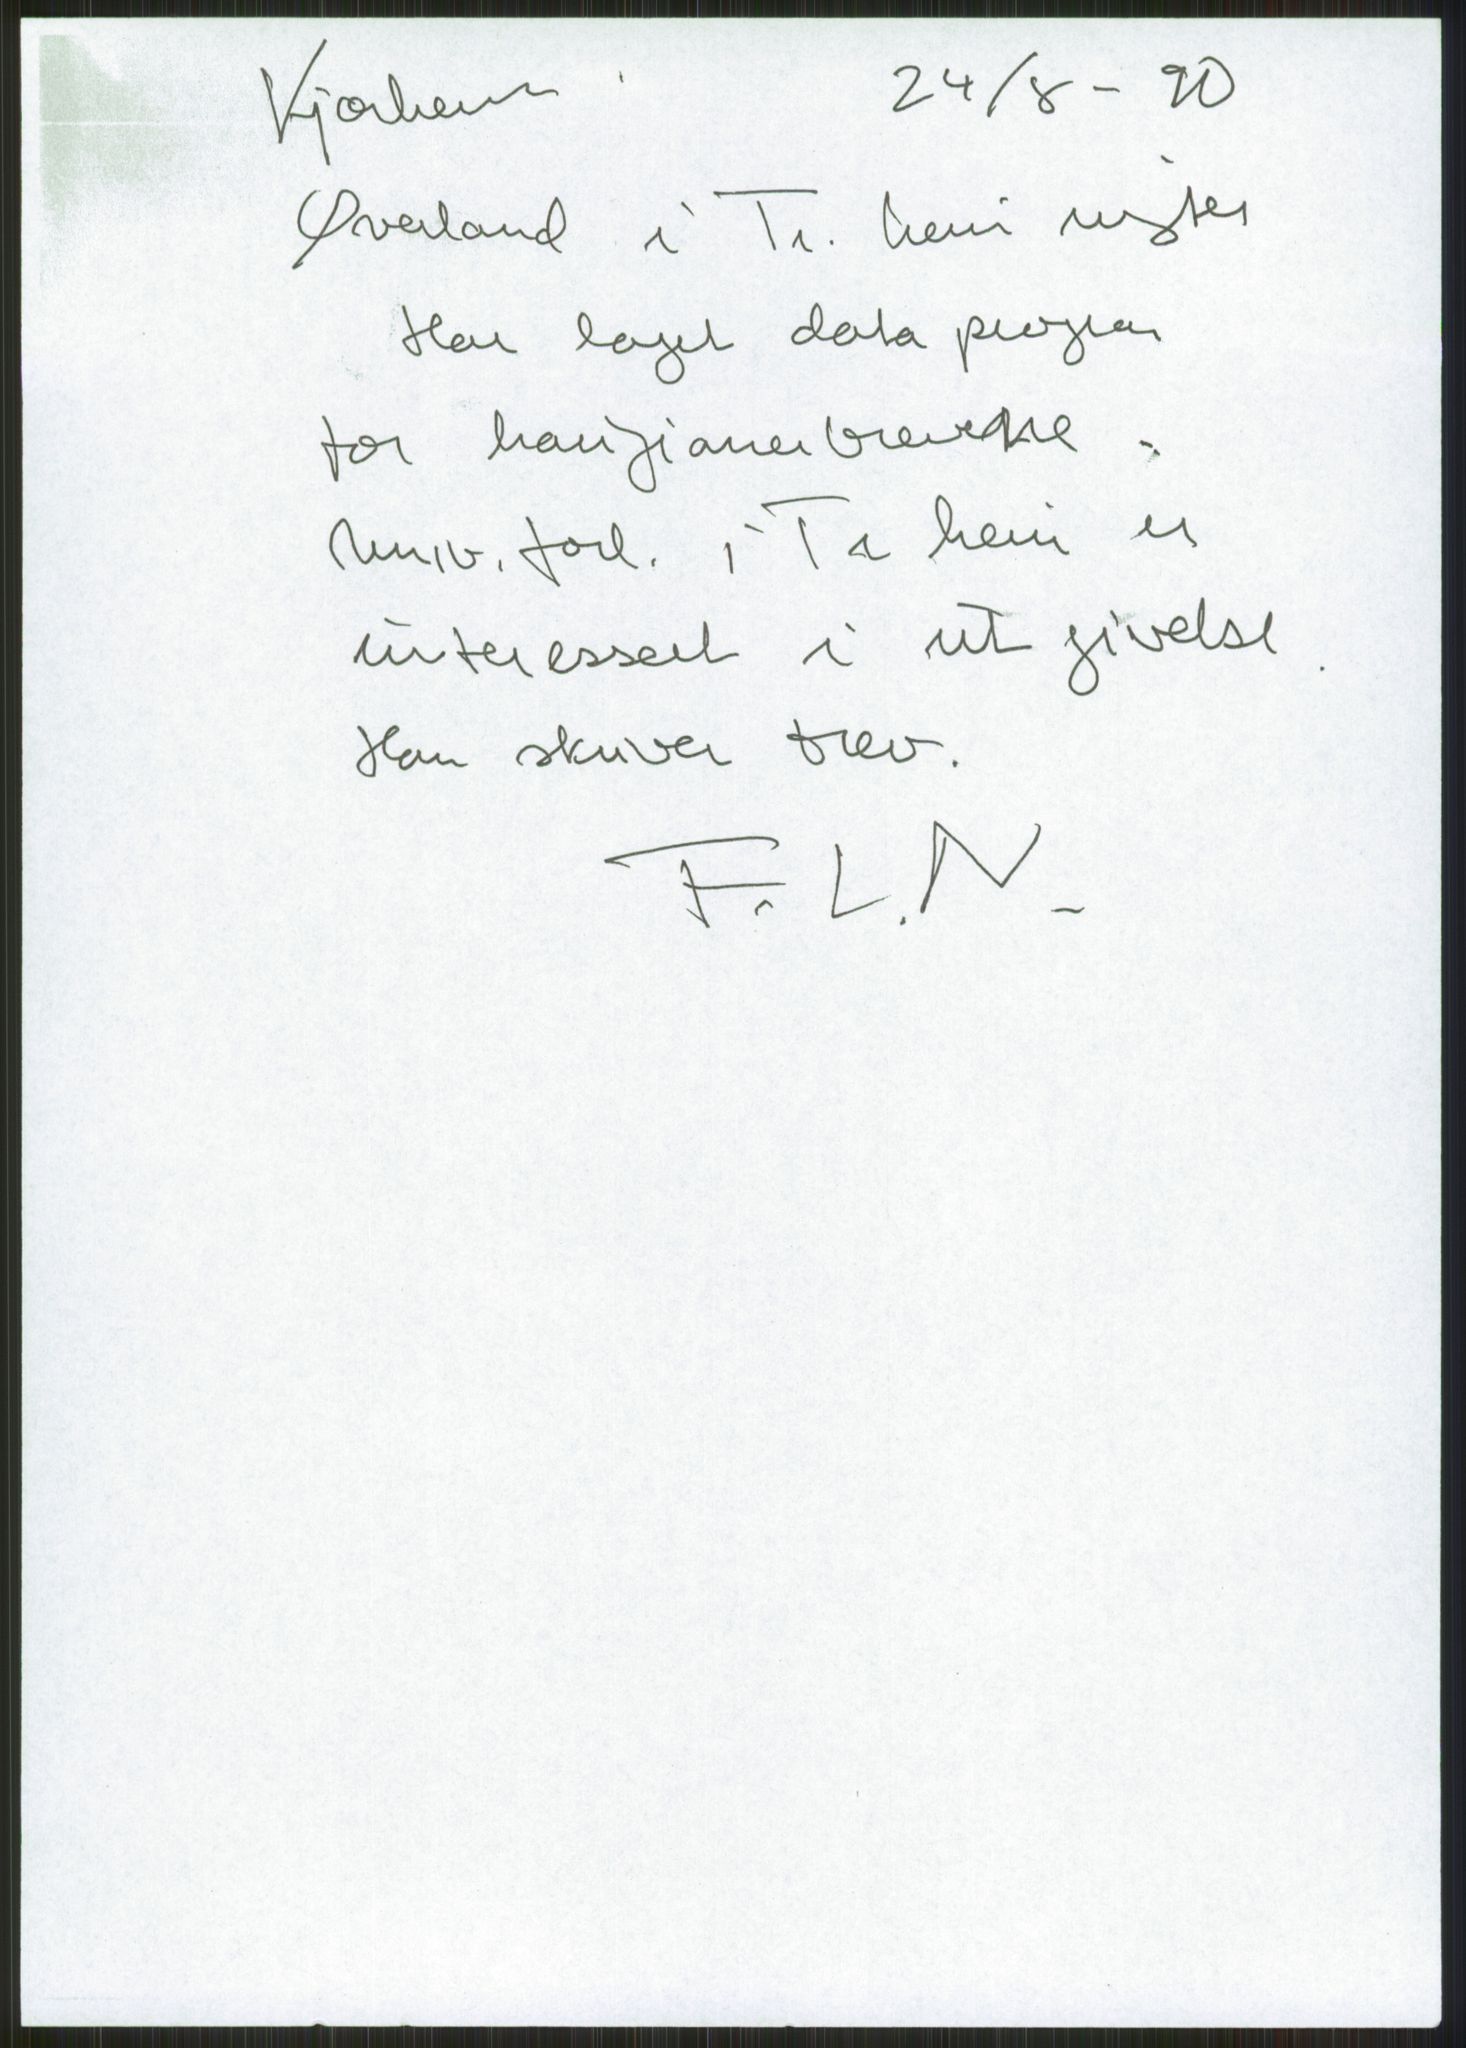 Kjorheim 24/8 - 90
Øverland i Tr. heim ringter
Har laget data program
for haugianerbrevene.
Univ. forl. i Tr heim er
interessert i utgivelse.
Han skriver brev.
F. L. N. -